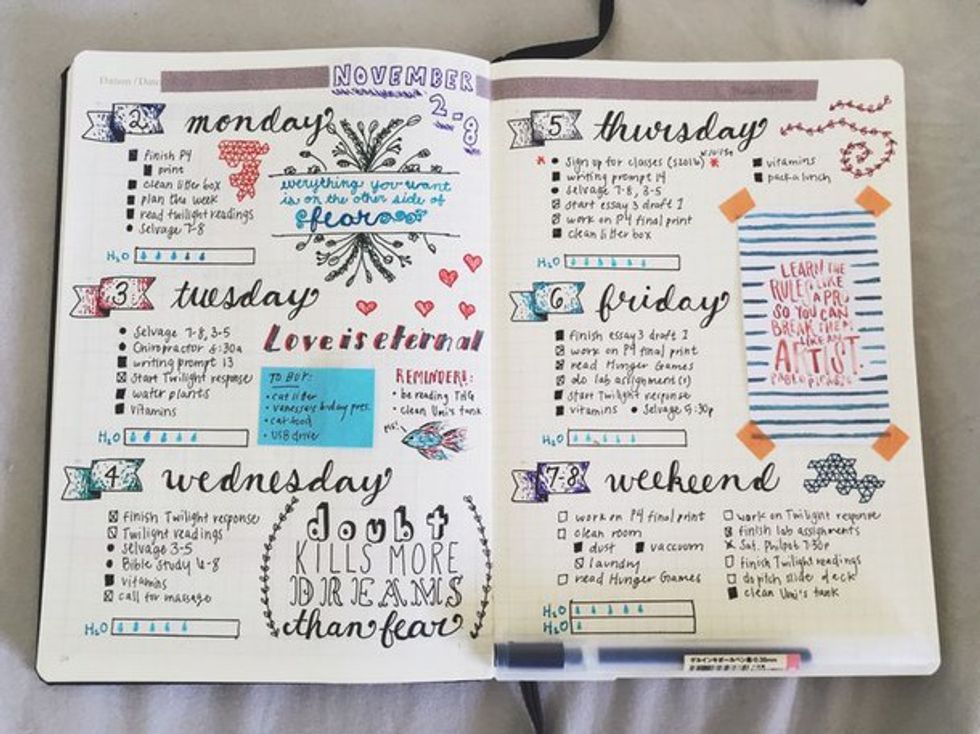 Datum / Date
NOVEMBER
2-8
2
monday
finish P4
print
clean litter box
plan the week
read twilight readings
Selvage 7-8
H2O
everything you want
is on the other side of
fear
3
tuesday
Selvage 7-8, 3-5
Chiropractor 8:30a
writing prompt 13
Start Twilight response
water plants
vitamins
H2O
Love is eternal
TO BUY:
• cat litter
• vanessa's bday pres.
• cat food
• USB drive
REMINDER!:
• be reading THG
• clean Umi's tank
4
wednesday
finish Twilight response
Twilight readings
Selvage 3-5
Bible Study 6-8
vitamins
call for massage
H2O
doubt
KILLS MORE
DREAMS
than fear
5
thursday
Sign up for classes (s2016)
writing prompt 14
Selvage 7-8, 3-5
start essay 3 draft 1
work on P4 final print
clean litter box
vitamins
pack a lunch
H2O
6
friday
finish essay 3 draft 1
work on P4 final print
read Hunger Games
do lab assignment(s)
start Twilight response
vitamins • Selvage 5:30p
H2O
LEARN THE
RULES LIKE
A PRO
SO YOU CAN
BREAK THEM
LIKE AN
ARTIST.
PABLO PICASSO
7-8
weekeend
work on P4 final print
clean room
dust vaccuum
laundry
read Hunger Games
work on Twilight response
finish lab assignments
Sat. Philpot 7:30p
finish Twilight readings
do pitch slide deck
clean Umi's tank
H2O
H2O
ゲルインキボールペン 0.38mm